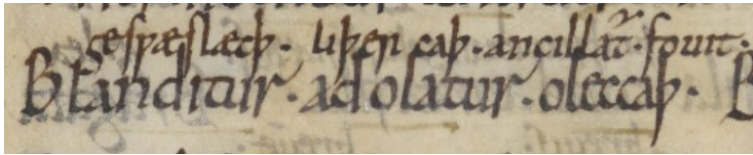 geswæslæcþ. liþercaþ. ancillat̃. fouit.
Blanditur. adolatur. oleccaþ.